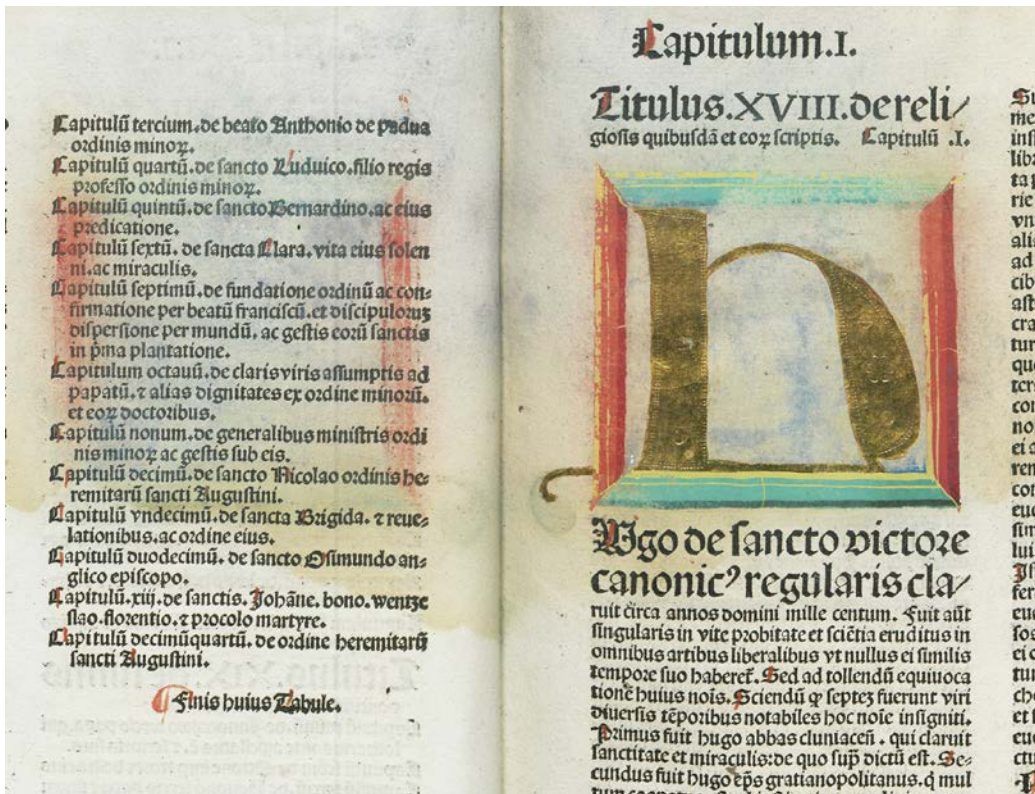 Capitulū tercium.de beato Anthonio de padua
ordinis minoꝝ.
Capitulū quartū.de sancto Luduico.filio regis
professo ordinis minoꝝ.
Capitulū quintū.de sancto Bernardino.ac eius
predicatione.
Capitulū sextū. de sancta Clara.vita eius solen
ni.ac miraculis.
Capitulū septimū.de fundatione ordinū ac con-
firmatione per beatū franciscū.et discipuloruꝫ
dispersione per mundū. ac gestis eorū sanctis
in p̄ma plantatione.
Capitulum octauū.de claris viris assumptis ad
papatū.⁊ alias dignitates ex ordine minorū.
et eoꝝ doctoribus.
Capitulū nonum.de generalibus ministris ordi
nis minoꝝ ac gestis sub eis.
Capitulū decimū.de sancto Nicolao ordinis he-
remitarū sancti Augustini.
Capitulū vndecimū.de sancta Brigida. ⁊ reue-
lationibus.ac ordine eius.
Capitulū duodecimū. de sancto Osimundo an-
glico episcopo.
Capitulū.xiij.de sanctis.Johāne.bono.wentze
slao.florentio.⁊ procolo martyre.
Capitulū decimūquartū.de ordine heremitarū
sancti Augustini.
Finis huius Tabule.
Capitulum.I.
Titulus.XVIII.de reli/
giosis quibusdā et eoꝝ scriptis. Capitulū .I.
h
Vgo de sancto victore
canonicꝰ regularis cla/
ruit circa annos domini mille centum. Fuit aūt
singularis in vite probitate et sciētia eruditus in
omnibus artibus liberalibus vt nullus ei similis
tempore suo haberet̄. Sed ad tollendū equiuoca
tionē huius nois. Sciendū ꝙ septeꝫ fuerunt viri
diuersis tēporibus notabiles hoc noie insigniti.
Primus fuit hugo abbas cluniaceñ . qui claruit
sanctitate et miraculis:de quo sup̄ dictū est. Se-
cundus fuit hugo ep̄s gratianopolitanus.q̇ mul